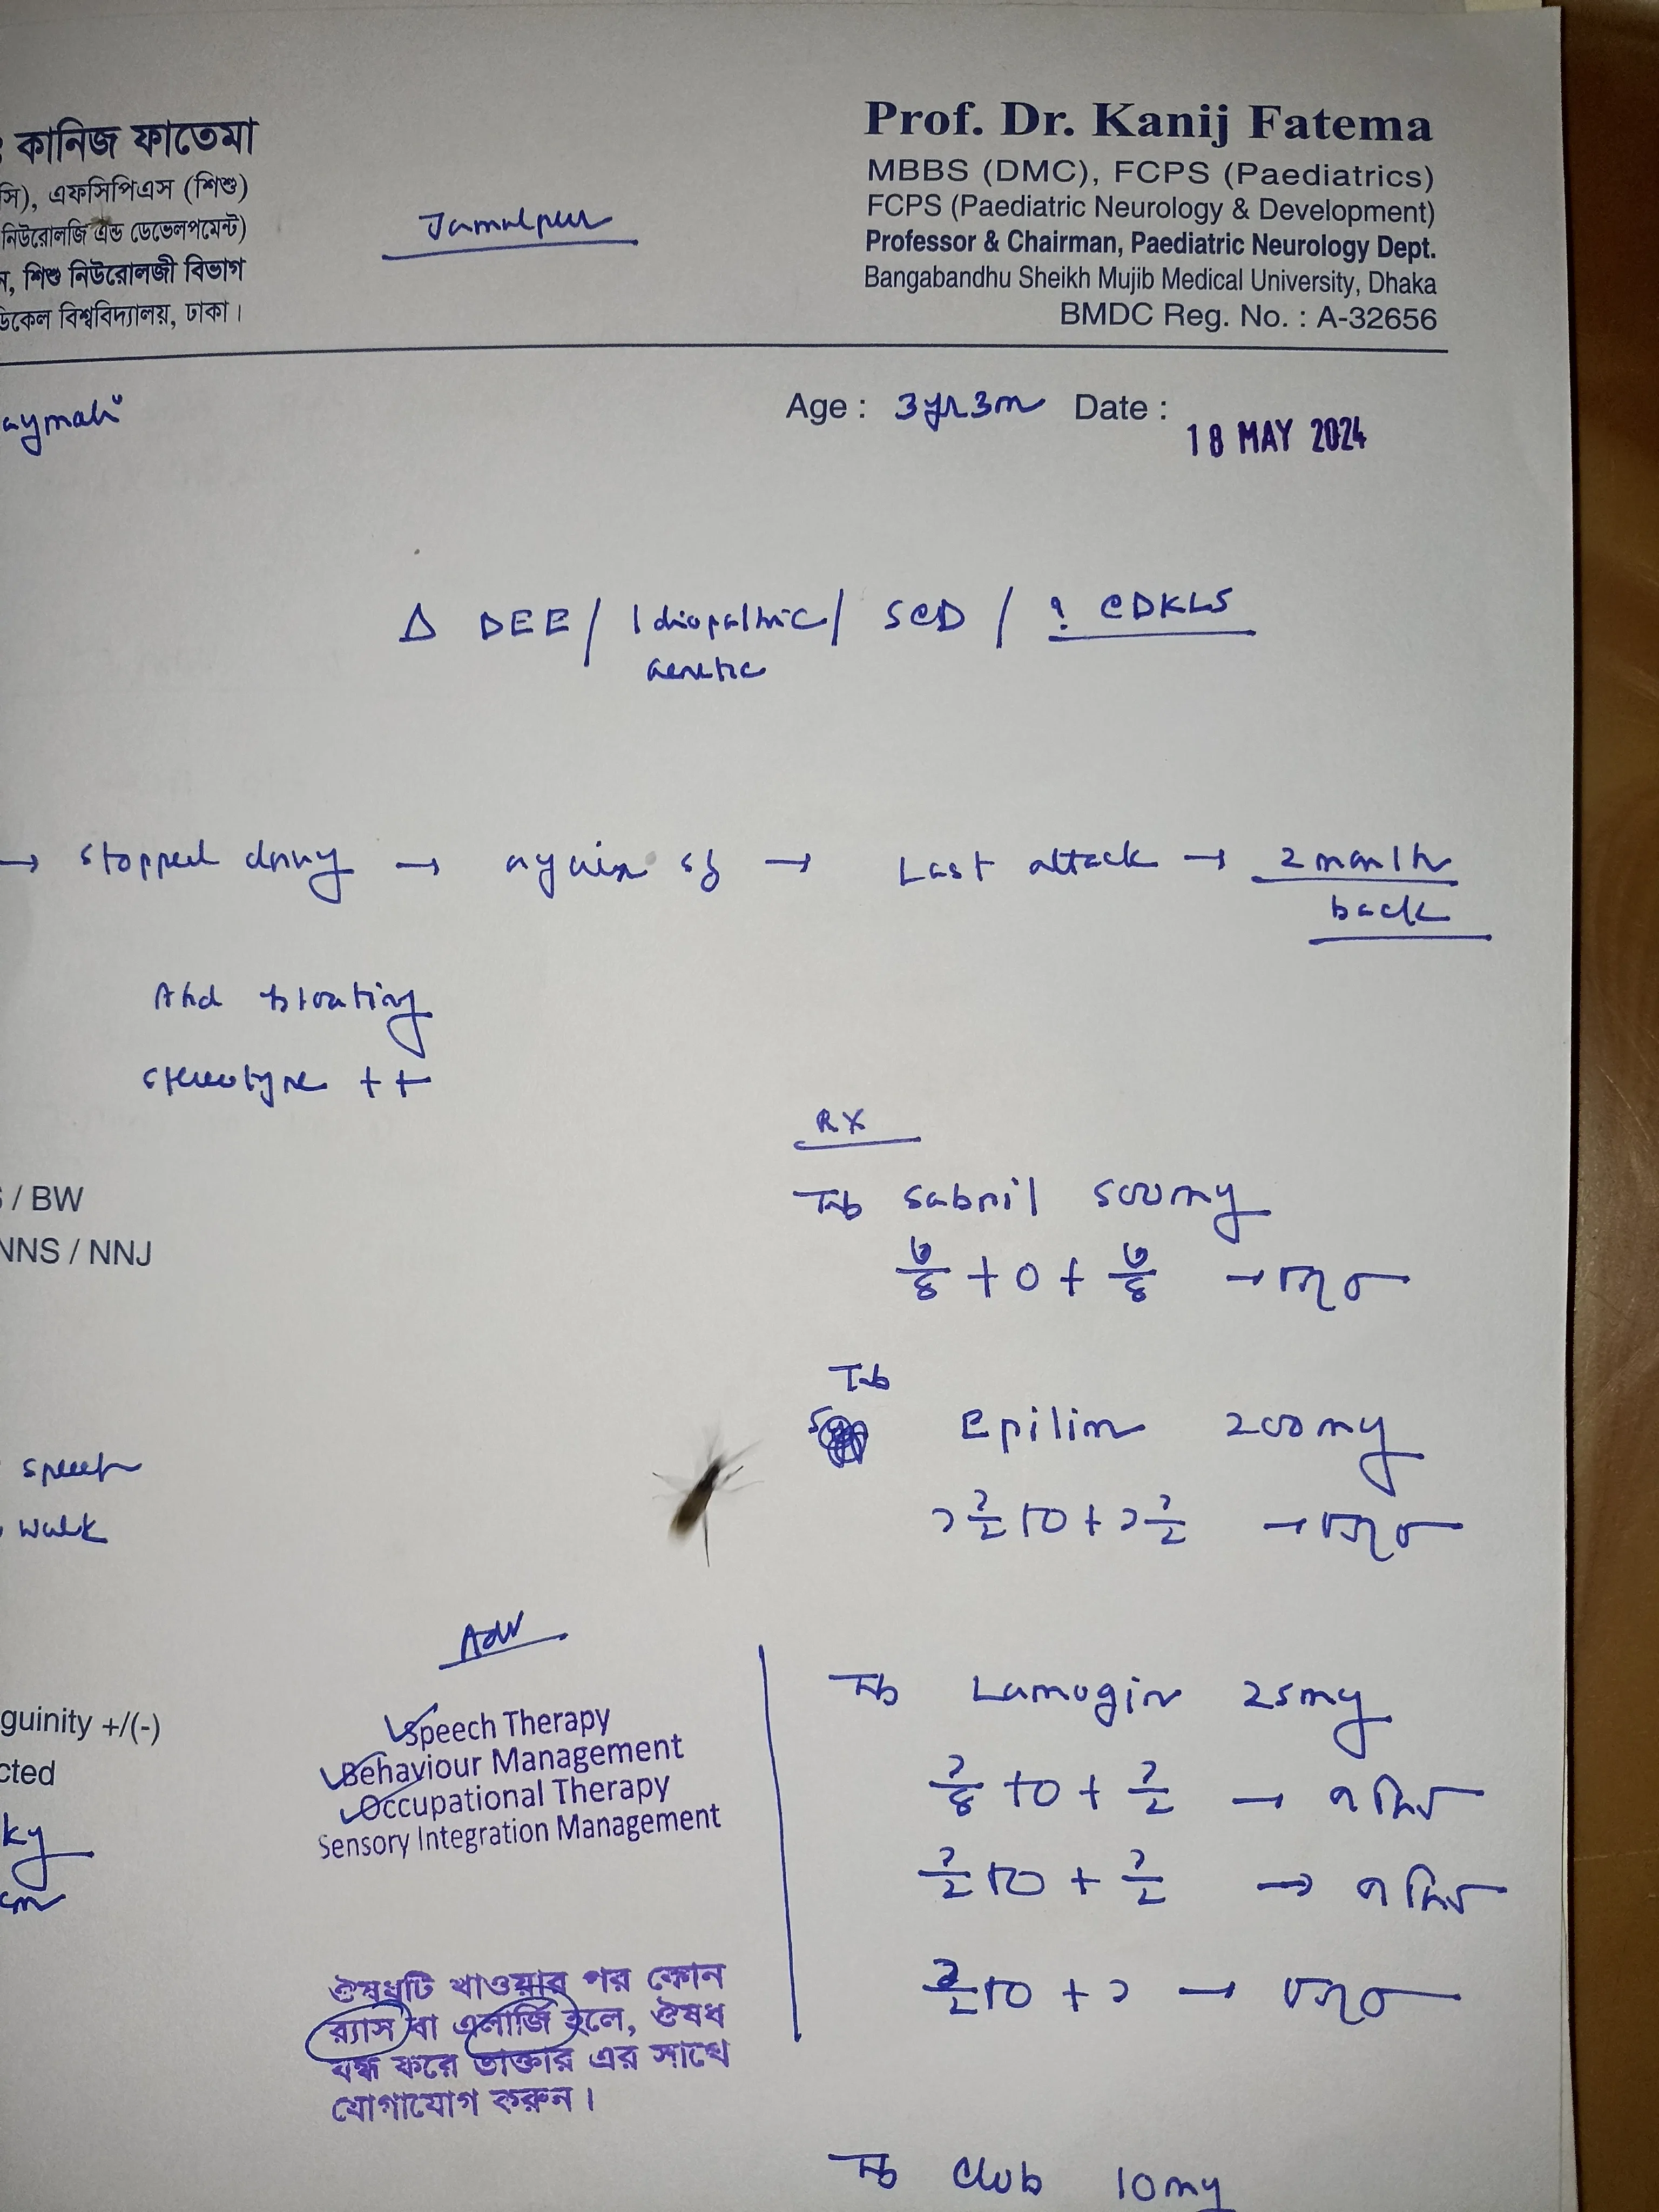 কানিজ ফাতেমা
সি), এফসিপিএস (শিশু)
নিউরোলজি এন্ড ডেভেলপমেন্ট)
ন, শিশু নিউরোলজী বিভাগ
ডিকেল বিশ্ববিদ্যালয়, ঢাকা।
Jamalpur
Prof. Dr. Kanij Fatema
MBBS (DMC), FCPS (Paediatrics)
FCPS (Paediatric Neurology & Development)
Professor & Chairman, Paediatric Neurology Dept.
Bangabandhu Sheikh Mujib Medical University, Dhaka
BMDC Reg. No. : A-32656
aymah
Age : 3yr3m Date :
18 MAY 2024
Δ DEE / Idiopathic / SCD / ? CDKL5
Genetic
→ stopped drug → again sz → Last attack → 2 month
back
Abd bloating
stereotype ++
Rx
Tab Sabril 500mg
৩/৪ + 0 + ৩/৪ → চলবে
/ BW
NNS / NNJ
Tab
Epilim 200mg
১ ১/২ + 0 + ১ ১/২ → চলবে
speech
walk
Adv
Speech Therapy
Behaviour Management
Occupational Therapy
Sensory Integration Management
guinity +/(-)
cted
kg
cm
Tab Lamogin 25mg
১/৪ + 0 + ১/২ → ৭ দিন
১/২ + 0 + ১/২ → ৭ দিন
১/২ + 0 + ১ → চলবে
ঔষধটি খাওয়ার পর কোন
র‍্যাস বা এলার্জি হলে, ঔষধ
বন্ধ করে ডাক্তার এর সাথে
যোগাযোগ করুন।
Tab Club 10mg